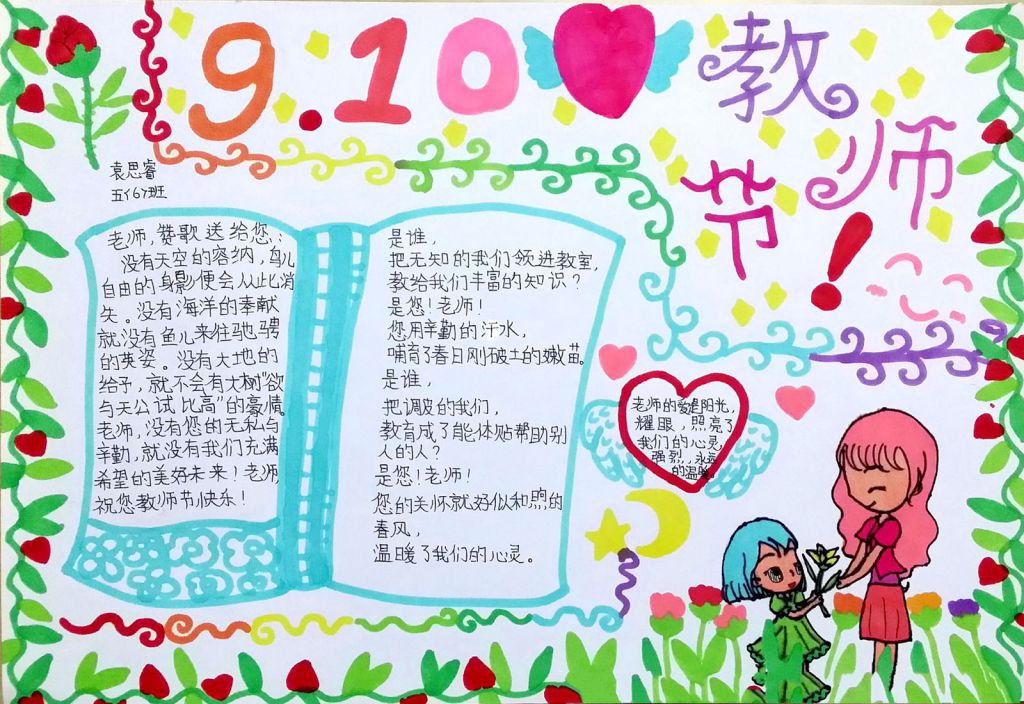 9.10
教师节!
袁思睿
五(6)班
老师,赞歌送给您:
没有天空的容纳,鸟儿
自由的身影便会从此消
失。没有海洋的奉献
就没有鱼儿来往驰骋
的英姿。没有大地的
给予,就不会有大树“欲
与天公试比高”的豪情。
老师,没有您的无私与
辛勤,就没有我们充满
希望的美好未来!老师
祝您教师节快乐!
是谁,
把无知的我们领进教室,
教给我们丰富的知识?
是您!老师!
您用辛勤的汗水,
哺育了春日刚破土的嫩苗。
是谁,
把调皮的我们,
教育成了能体贴帮助别
人的人?
是您!老师!
您的关怀就好似和煦的
春风,
温暖了我们的心灵。
老师的爱是阳光,
耀眼,照亮了
我们的心灵,
强烈,永远
的温暖。